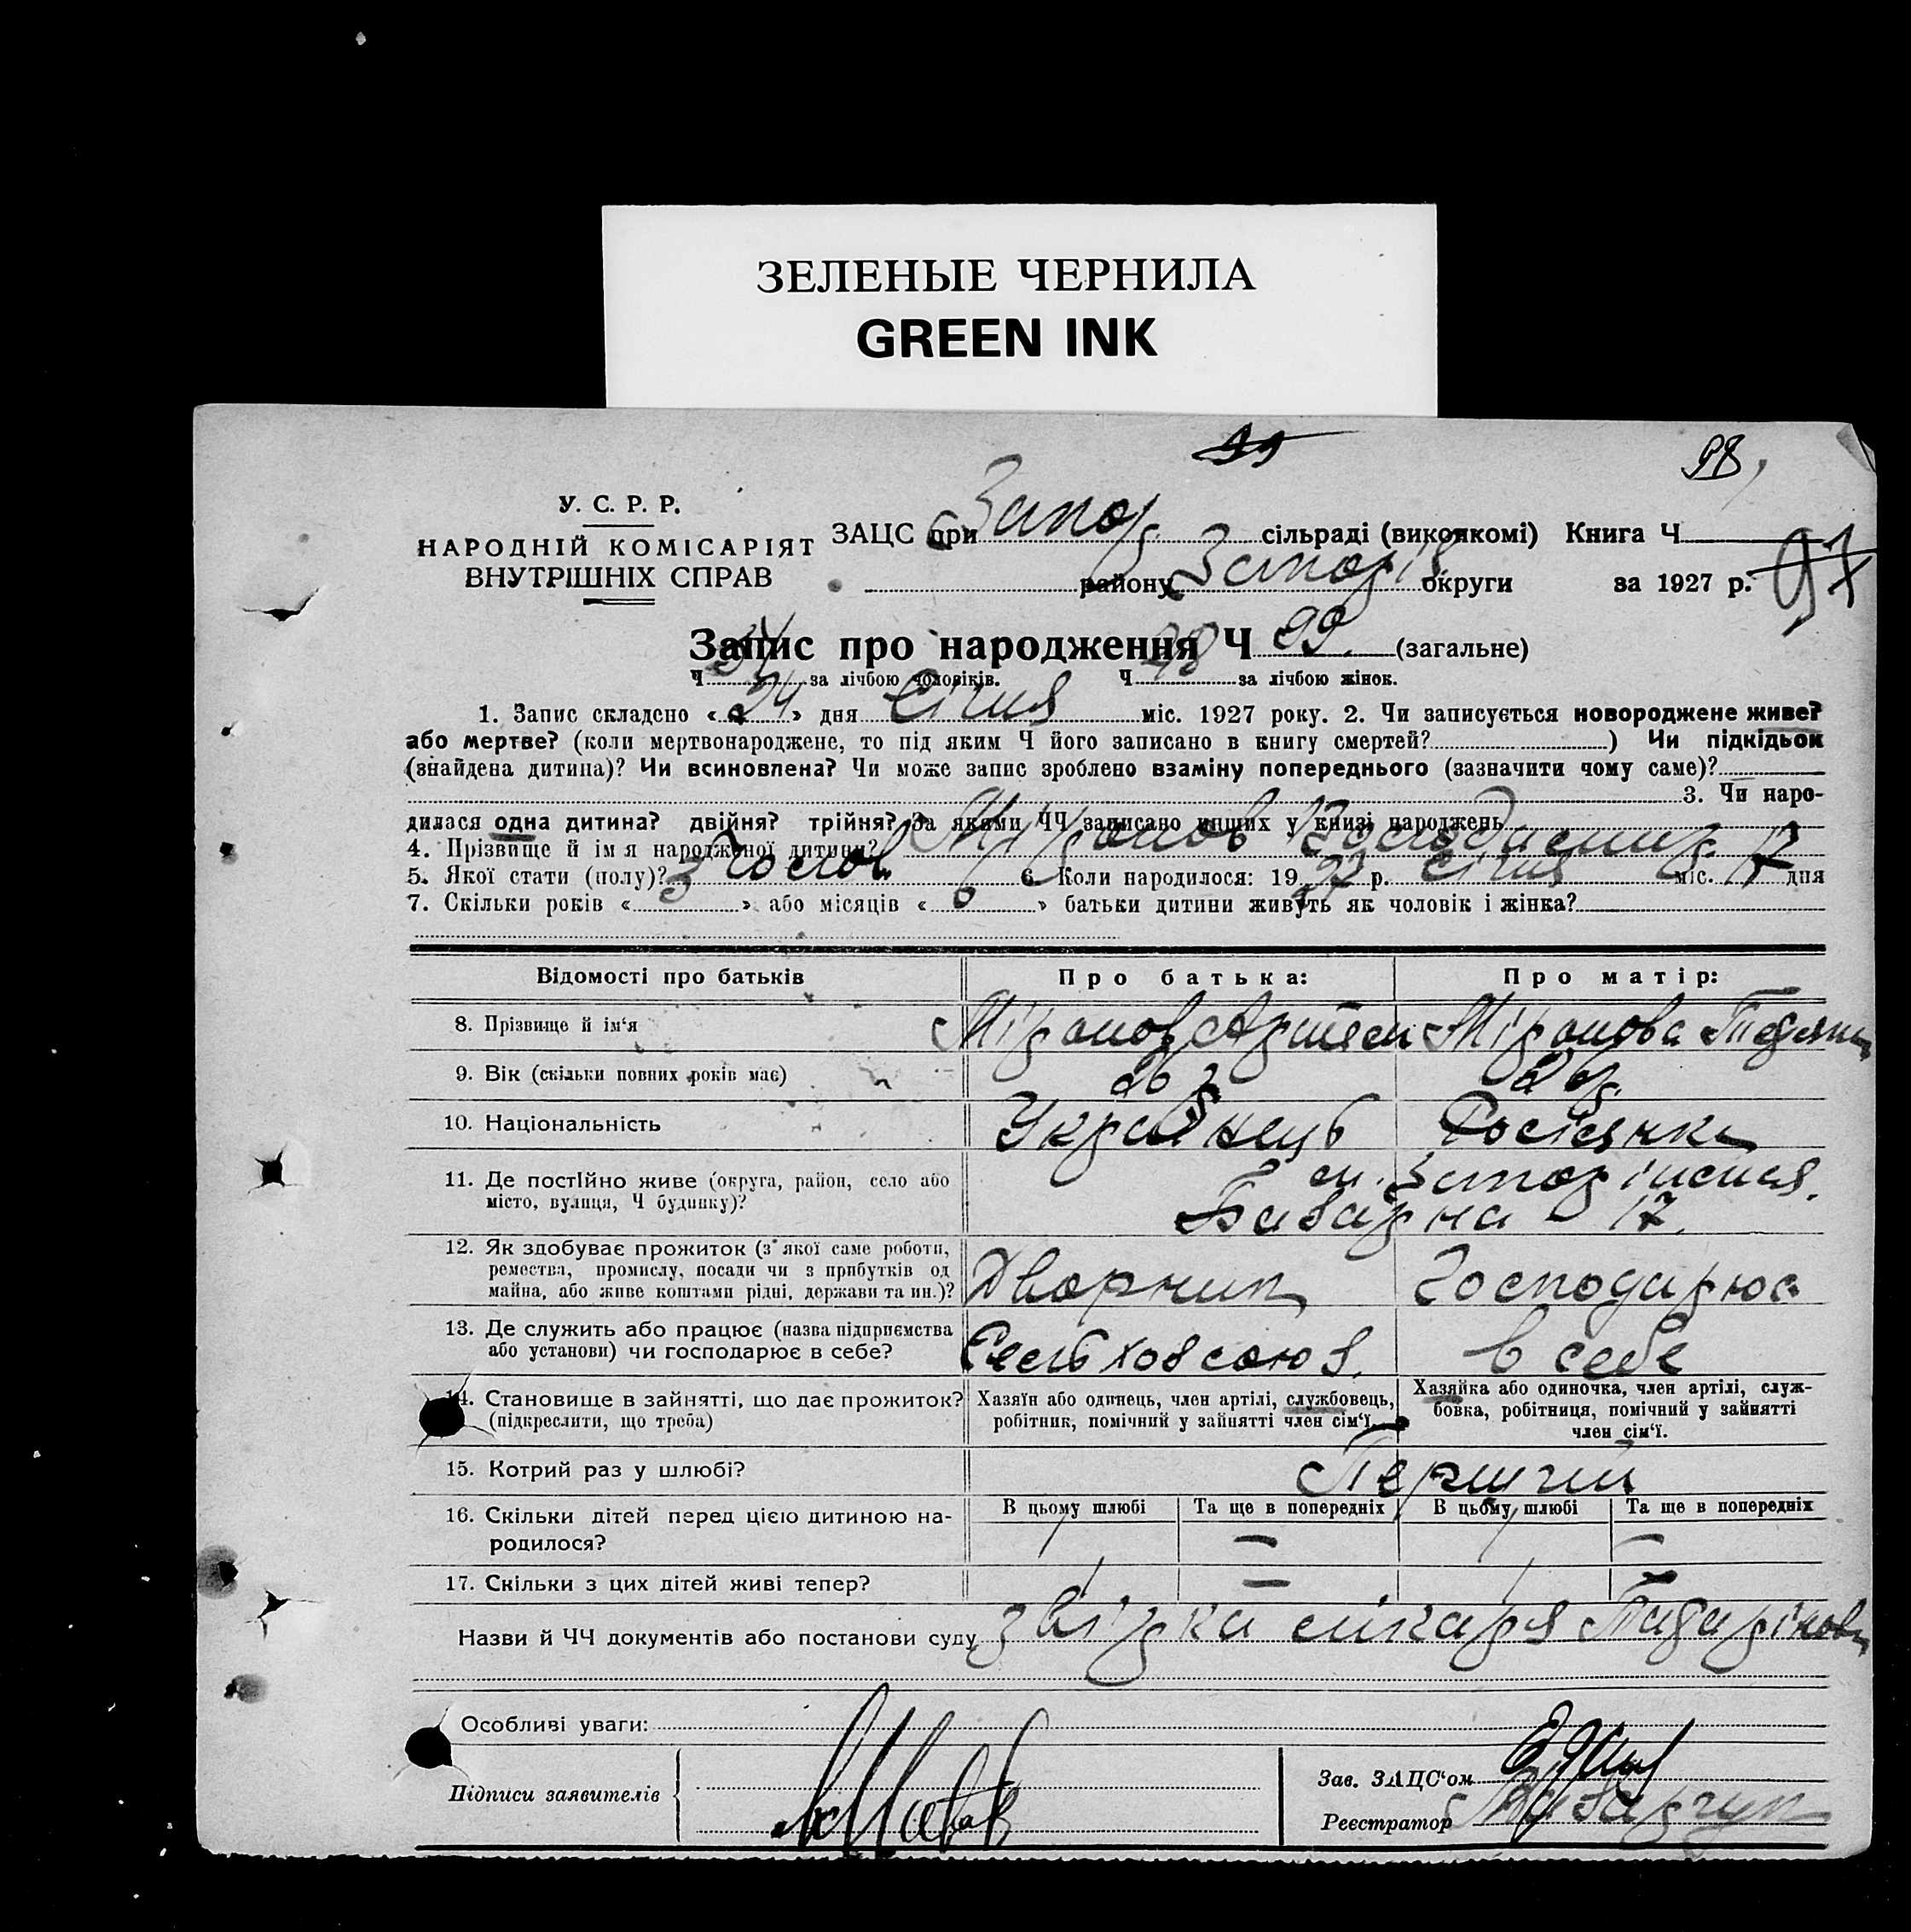 ЗЕЛЕНЫЕ ЧЕРНИЛА
GREEN INK
99
98
У. С. Р. Р.
НАРОДНІЙ КОМІСАРІЯТ
ВНУТРІШНІХ СПРАВ
ЗАЦС при Запор. сільраді (виконкомі) Книга Ч
району Запоріз округи за 1927 р. 97
Запис про народження Ч 99. (загальне)
Ч за лічбою чоловіків. Ч 48 за лічбою жінок.
1. Запис складено « 24 » дня Січня міс. 1927 року. 2. Чи записується новороджене живе?
або мертве? (коли мертвонароджене, то під яким Ч його записано в книгу смертей? ) Чи підкідьок
(знайдена дитина)? Чи всиновлена? Чи може запис зроблено взаміну попереднього (зазначити чому саме)?
3. Чи наро-
дилася одна дитина? двійня? трійня? За якими ЧЧ записано инших у книзі народжень
4. Прізвище й ім'я народженої дитини? Міронов
5. Якої стати (полу)? Чолов. 6. Коли народилося: 1927 р. січня міс. 17 дня
7. Скільки років « 3 » або місяців « 6 » батьки дитини живуть як чоловік і жінка?
Відомості про батьків Про батька: Про матір:
8. Прізвище й ім'я Міронов Артем Міронова Тетяна
9. Вік (скільки повних років має) 26 р.
10. Національність Українець Росіянка
11. Де постійно живе (округа, район, село або
місто, вулиця, Ч будинку)?
м. Запоріжжя.
Базарна 17.
12. Як здобуває прожиток (з якої саме роботи,
ремества, промислу, посади чи з прибутків од
майна, або живе коштами рідні, держави та ин.)?
Дворник Господарює
13. Де служить або працює (назва підприємства
або установи) чи господарює в себе?
в себе
14. Становище в зайнятті, що дає прожиток?
(підкреслити, що треба)
Хазяїн або одинець, член артілі, службовець,
робітник, помічний у зайнятті член сім'ї.
Хазяйка або одиночка, член артілі, служ-
бовка, робітниця, помічний у зайнятті
член сім'ї.
15. Котрий раз у шлюбі? Перший
16. Скільки дітей перед цією дитиною на-
родилося?
В цьому шлюбі Та ще в попередніх В цьому шлюбі Та ще в попередніх
1 — 1 —
17. Скільки з цих дітей живі тепер? 1 — 1 —
Назви й ЧЧ документів або постанови суду довідка лікаря
Особливі уваги:
Підписи заявителів
Зав. ЗАЦС'ом
Реєстратор